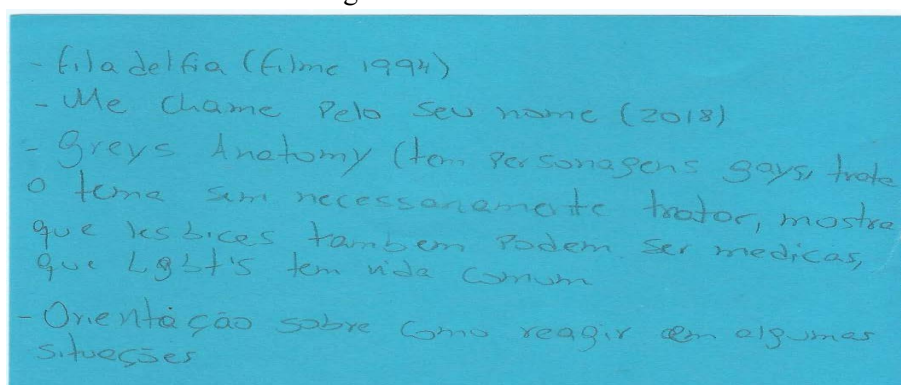 - Filadelfia (filme 1994)
- Me chame Pelo seu nome (2018)
- Greys Anatomy (tem personagens gays, trate
o tema sem necessariamente trator, mostra
que lesbicas tambem podem ser medicas,
que Lgbt's tem vida comum
- Orientação sobre como reagir em algumas
situações